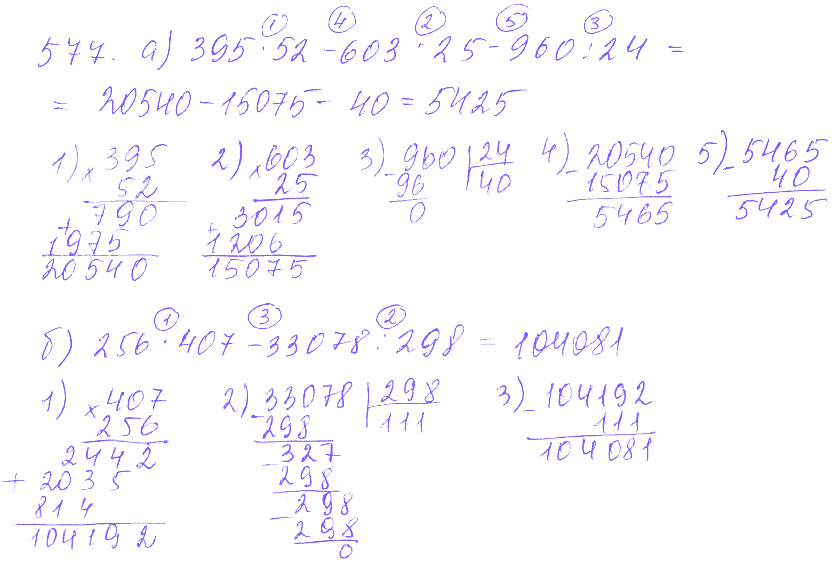 ① ④ ② ⑤ ③
577. а) 395·52 - 603·25 - 960:24 =
= 20540 - 15075 - 40 = 5425
1) × 395 2) × 603 3) - 960 24 4) - 20540 5) - 5465
52 25 96 40 15075 40
790 3015 0 5465 5425
+ 1975 + 1206
20540 15075
① ③ ②
б) 256·407 - 33078:298 = 104081
1) × 407 2) - 33078 298 3) - 104192
256 298 111 111
2442 - 327 104081
+ 2035 298
814 - 298
104192 298
0